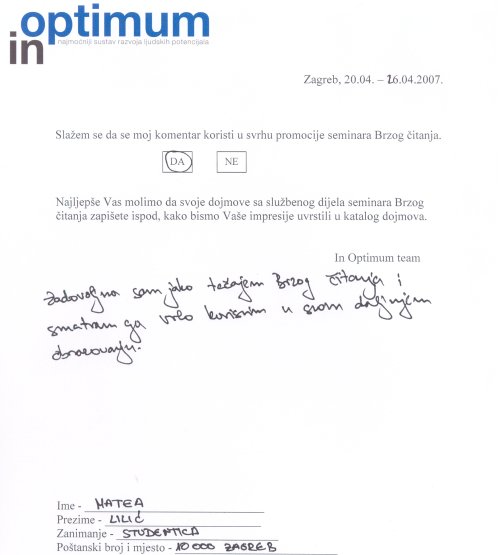 optimum
in
najmoćniji sustav razvoja ljudskih potencijala
Zagreb, 20.04. – 26.04.2007.
Slažem se da se moj komentar koristi u svrhu promocije seminara Brzog čitanja.
DA NE
Najljepše Vas molimo da svoje dojmove sa službenog dijela seminara Brzog
čitanja zapišete ispod, kako bismo Vaše impresije uvrstili u katalog dojmova.
In Optimum team
Zadovoljna sam jako tečajem Brzog čitanja i
smatram ga vrlo korisnim u svom daljnjem
obrazovanju.
Ime - MATEA
Prezime - LILIĆ
Zanimanje - STUDENTICA
Poštanski broj i mjesto - 10 000 ZAGREB